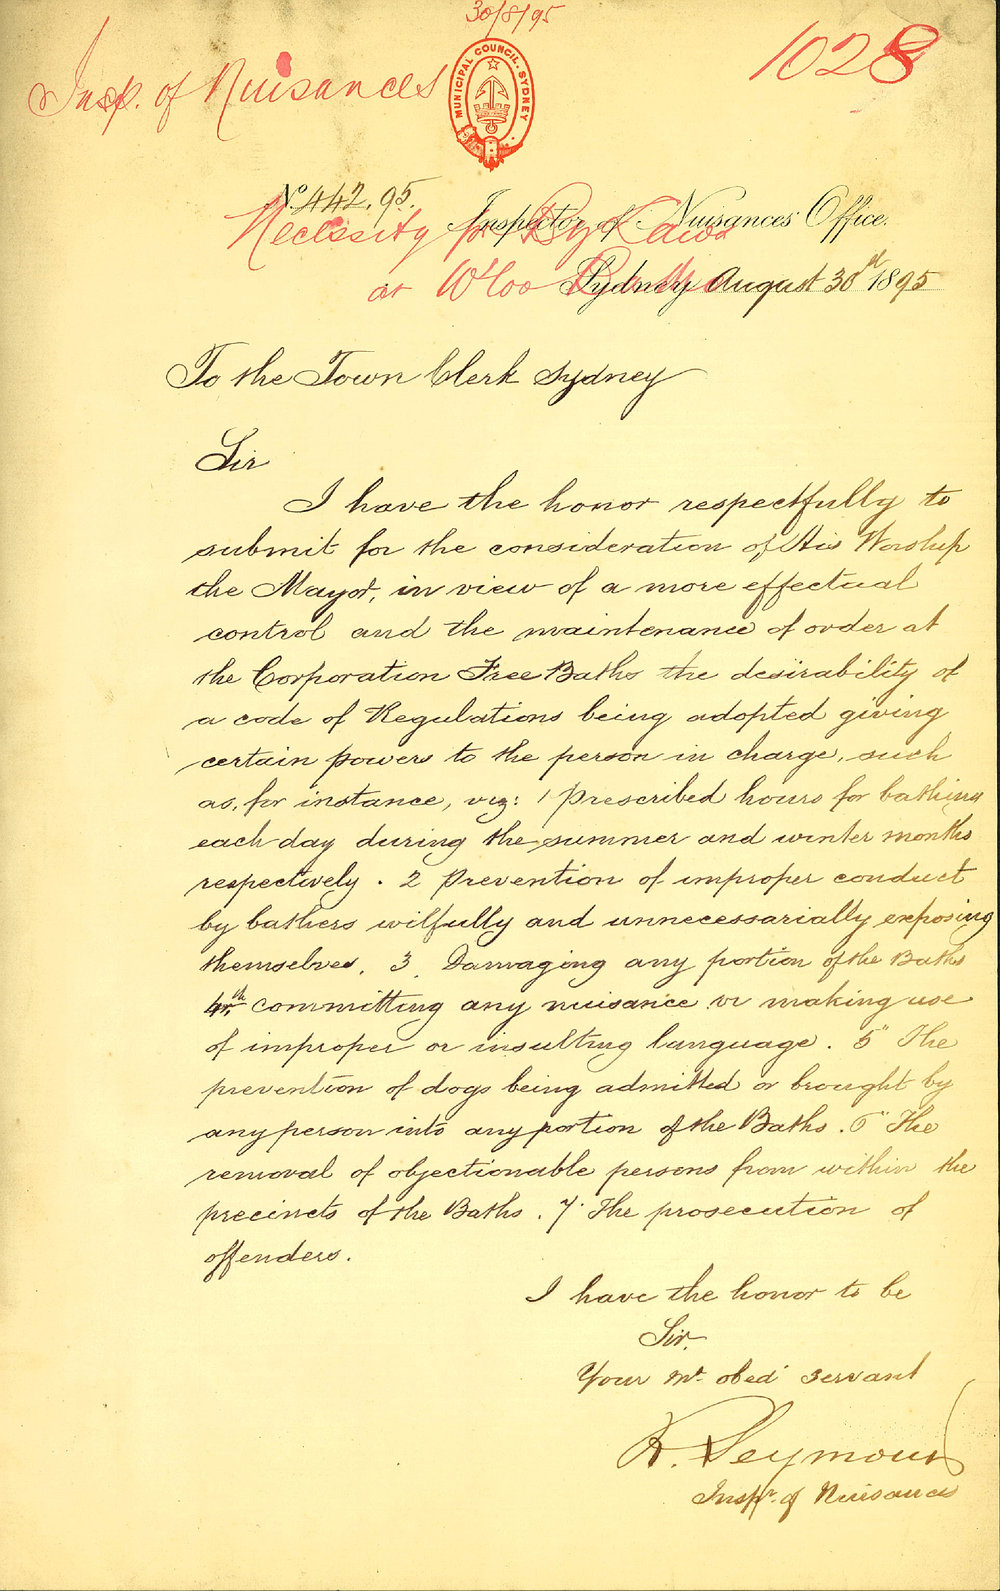 30/8/95
Insp. of Nuisances
1028
MUNICIPAL COUNCIL. SYDNEY
No. 442. 95.
Inspector of Nuisances Office.
Necessity for By Laws
at W'loo Baths
Sydney August 30th 1895
To the Town Clerk Sydney
Sir
I have the honor respectfully to
submit for the consideration of His Worship
the Mayor, in view of a more effectual
control and the maintenance of order at
the Corporation Free Baths the desirability of
a code of Regulations being adopted giving
certain powers to the person in charge, such
as, for instance, viz: 1 Prescribed hours for bathing
each day during the summer and winter months
respectively. 2 Prevention of improper conduct
by bathers wilfully and unnecessarially exposing
themselves. 3. Damaging any portion of the Baths
4th committing any nuisance or making use
of improper or insulting language. 5" The
prevention of dogs being admitted or brought by
any person into any portion of the Baths. 6" The
removal of objectionable persons from within the
precincts of the Baths. 7. The prosecution of
offenders.
I have the honor to be
Sir.
Your mt. obed servant
R. Seymour
Inspr. of Nuisances